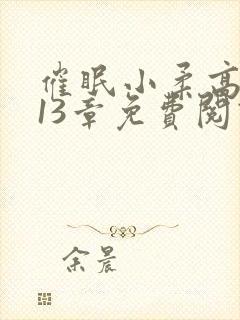 催眠小柔高
13章免費閱
余晨